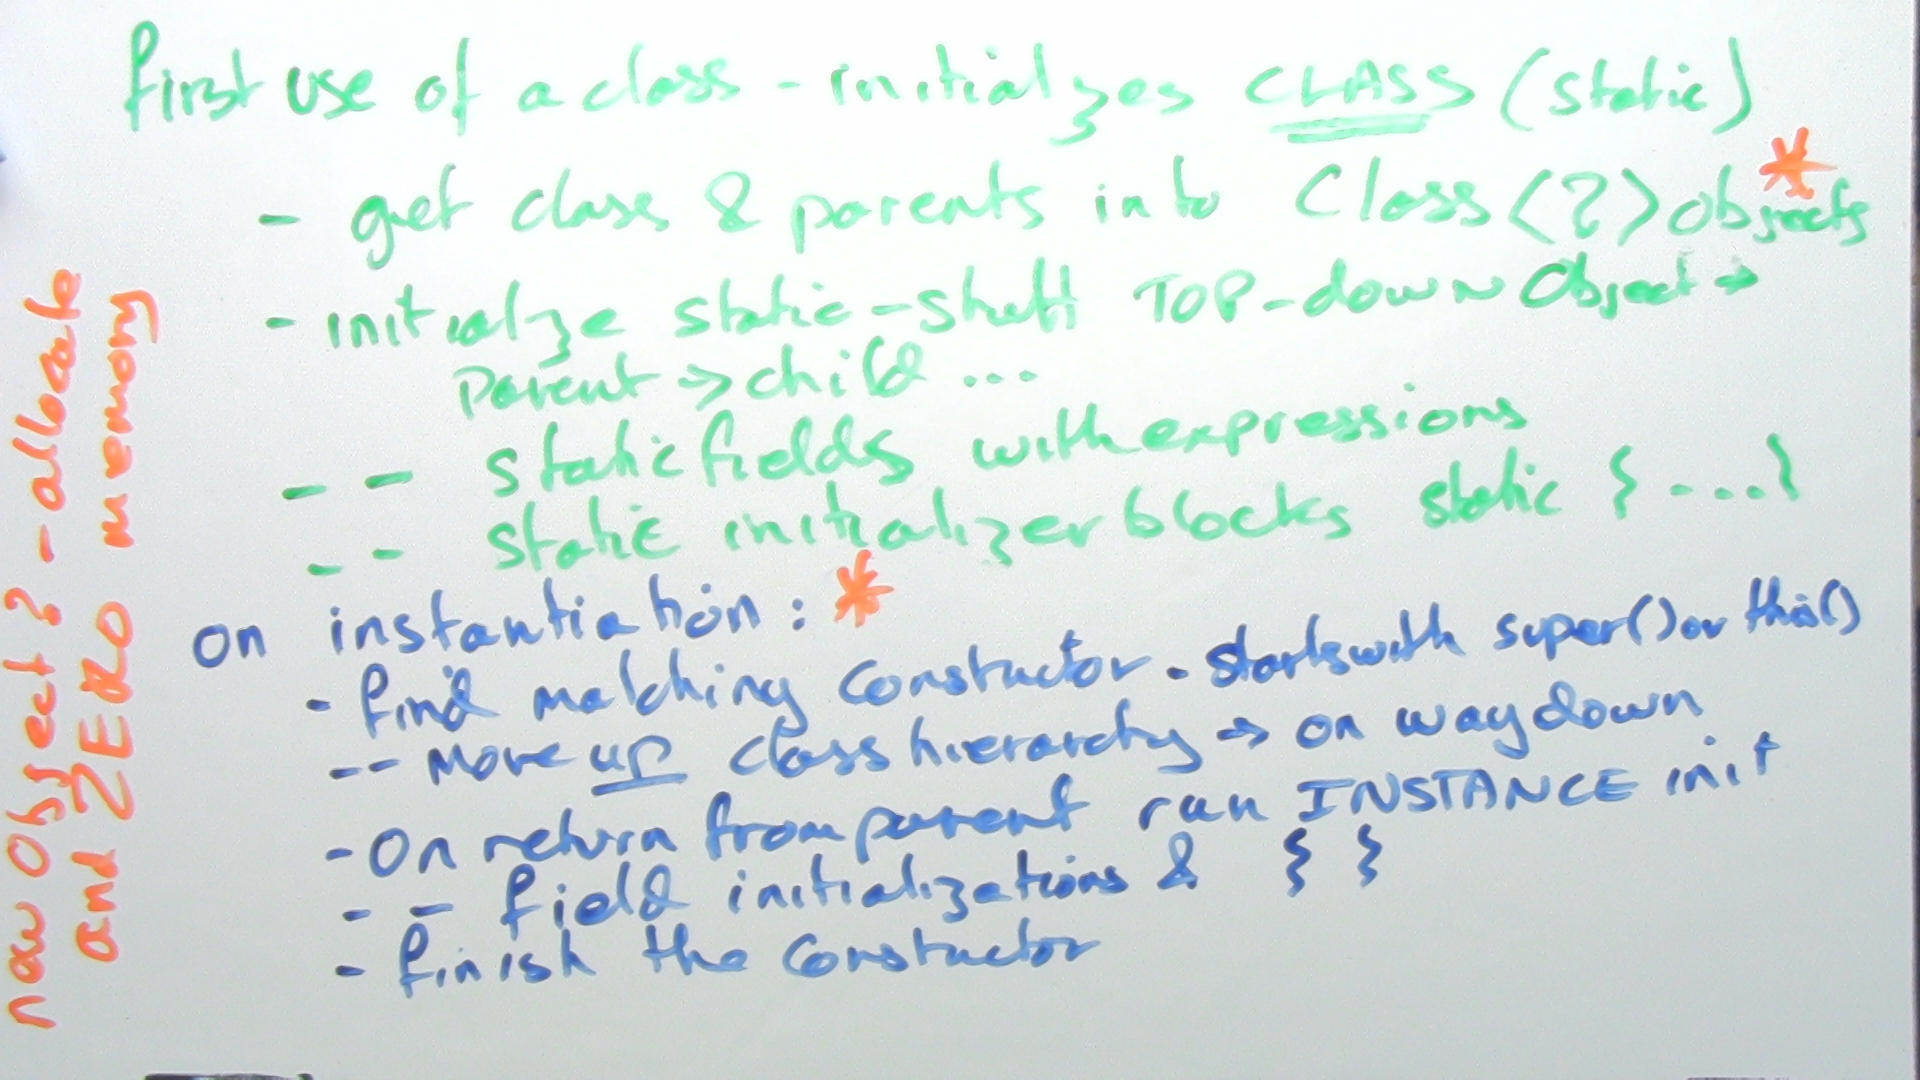 first use of a class - initialzes CLASS (static)
- get class & parents into Class<?> objects *
- initialze static-stuff TOP-down Object →
parent → child ...
-- static fields with expressions
-- static initializer blocks static { ... }
on instantiation: *
- find matching constructor. starts with super() or this()
-- move up class hierarchy → on way down
- On return from parent run INSTANCE init
-- field initializations & { }
- finish the constructor
new object? - allocate
and ZERO memory